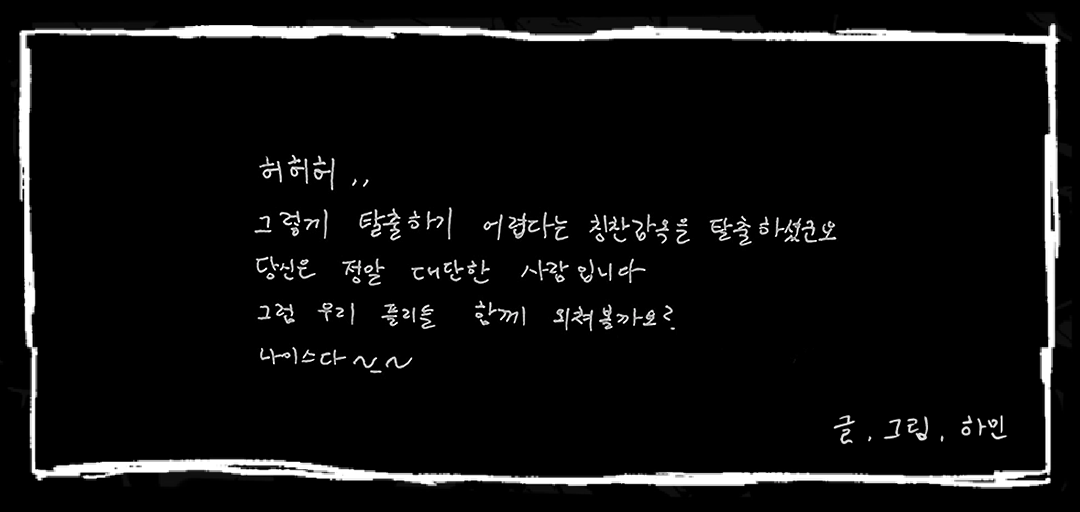 허허허,,
그렇게 탈출하기 어렵다는 칭찬감옥을 탈출하셨군요
당신은 정말 대단한 사람입니다
그럼 우리 플리들 함께 외쳐볼까요?
나이스다~_~
글, 그림, 하민